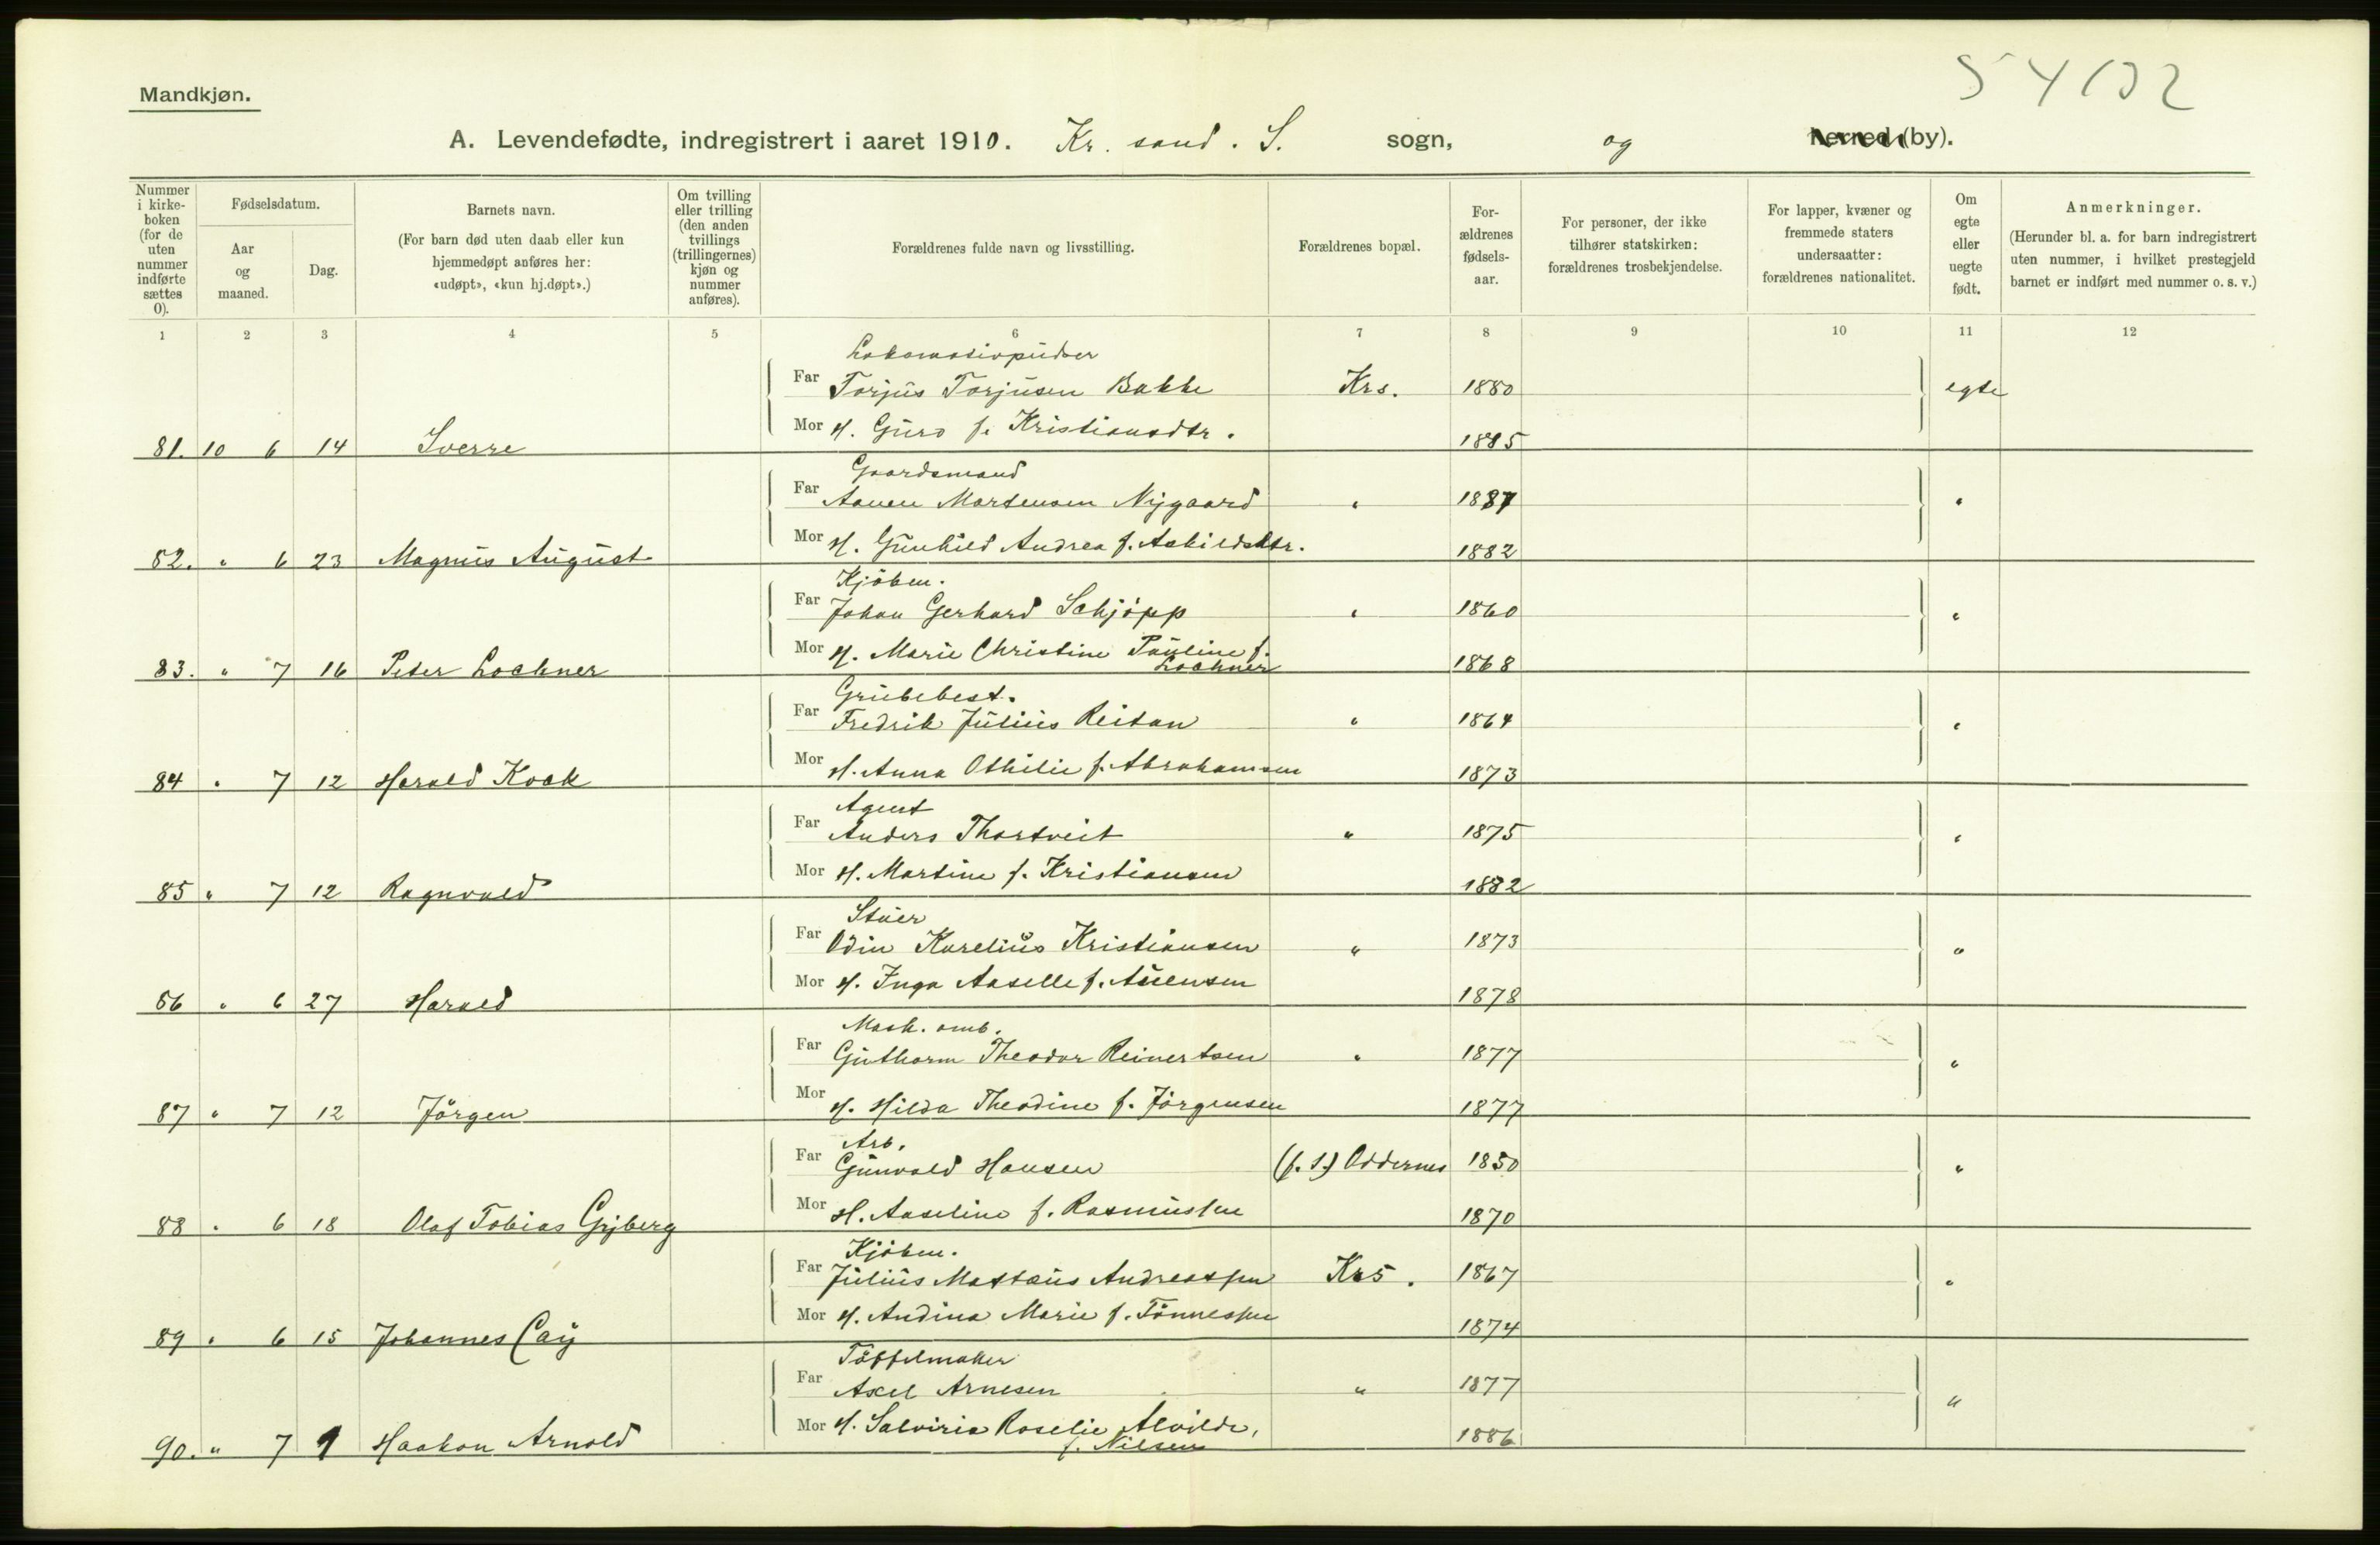 Mandkjøn.
54132
A. Levendefødte, indregistrert i aaret 1910. Kr. sand. S. sogn, og herred (by).
Nummer i kirkeboken (for de uten nummer indførte sættes 0).
Fødselsdatum.
Aar og maaned.
Dag.
Barnets navn.
(For barn død uten daab eller kun hjemmedøpt anføres her: «udøpt», «kun hj.døpt».)
Om tvilling eller trilling (den anden tvillings (trillingernes) kjøn og nummer anføres).
Forældrenes fulde navn og livsstilling.
Forældrenes bopæl.
For-
ældrenes
fødsels-
aar.
For personer, der ikke
tilhører statskirken:
forældrenes trosbekjendelse.
For lapper, kvæner og
fremmede staters
undersaatter:
forældrenes nationalitet.
Om
egte
eller
uegte
født.
Anmerkninger.
(Herunder bl. a. for barn indregistrert
uten nummer, i hvilket prestegjeld
barnet er indført med nummer o. s. v.)
1 2 3 4 5 6 7 8 9 10 11 12
Lokomotivpudser
Far Torjus Torjusen Bakke Krs. 1880 egte
Mor H. Guro f. Kristiansdtr. 1885
81. 10 6 14 Sverre
Gaardsmand
Far Aanen Mortensen Nygaard " 1887 "
Mor H. Gunhild Andrea f. Askildsdtr. 1882
82. " 6 23 Magnus August
Kjöbm.
Far Johan Gerhard Schjöpp " 1860 "
Mor H. Marie Christine Pauline f.
Lochner 1868
83. " 7 16 Peter Lochner
Grubebest.
Far Fredrik Julius Reitan " 1864 "
Mor H. Anna Othilie f. Abrahamsen 1873
84 " 7 12 Harald Kock
Agent
Far Anders Thortveit " 1875 "
Mor H. Martine f. Kristiansen 1882
85 " 7 12 Ragnvald
Stuer
Far Odin Karelius Kristiansen " 1873 "
Mor H. Inga Aaselle f. Auensen 1878
86 " 6 27 Harald
Mask. arb.
Far Guthorm Theodor Reinertsen " 1877 "
Mor H. Hilda Theodine f. Jörgensen 1877
87 " 7 12 Jörgen
Arb.
Far Gunvald Hansen (f. s.) Oddernes 1850 "
Mor H. Aaseline f. Rasmussen 1870
88 " 6 18 Olaf Tobias Gyberg
Kjöbm.
Far Julius Mattæus Andreassen Krs. 1867 "
Mor H. Andina Marie f. Tönnessen 1874
89 " 6 15 Johannes Cay
Töffelmaker
Far Axel Arnesen " 1877 "
Mor H. Salviria Roselie Alvilde,
f. Nilsen 1886
90. " 7 9 Haakon Arnold